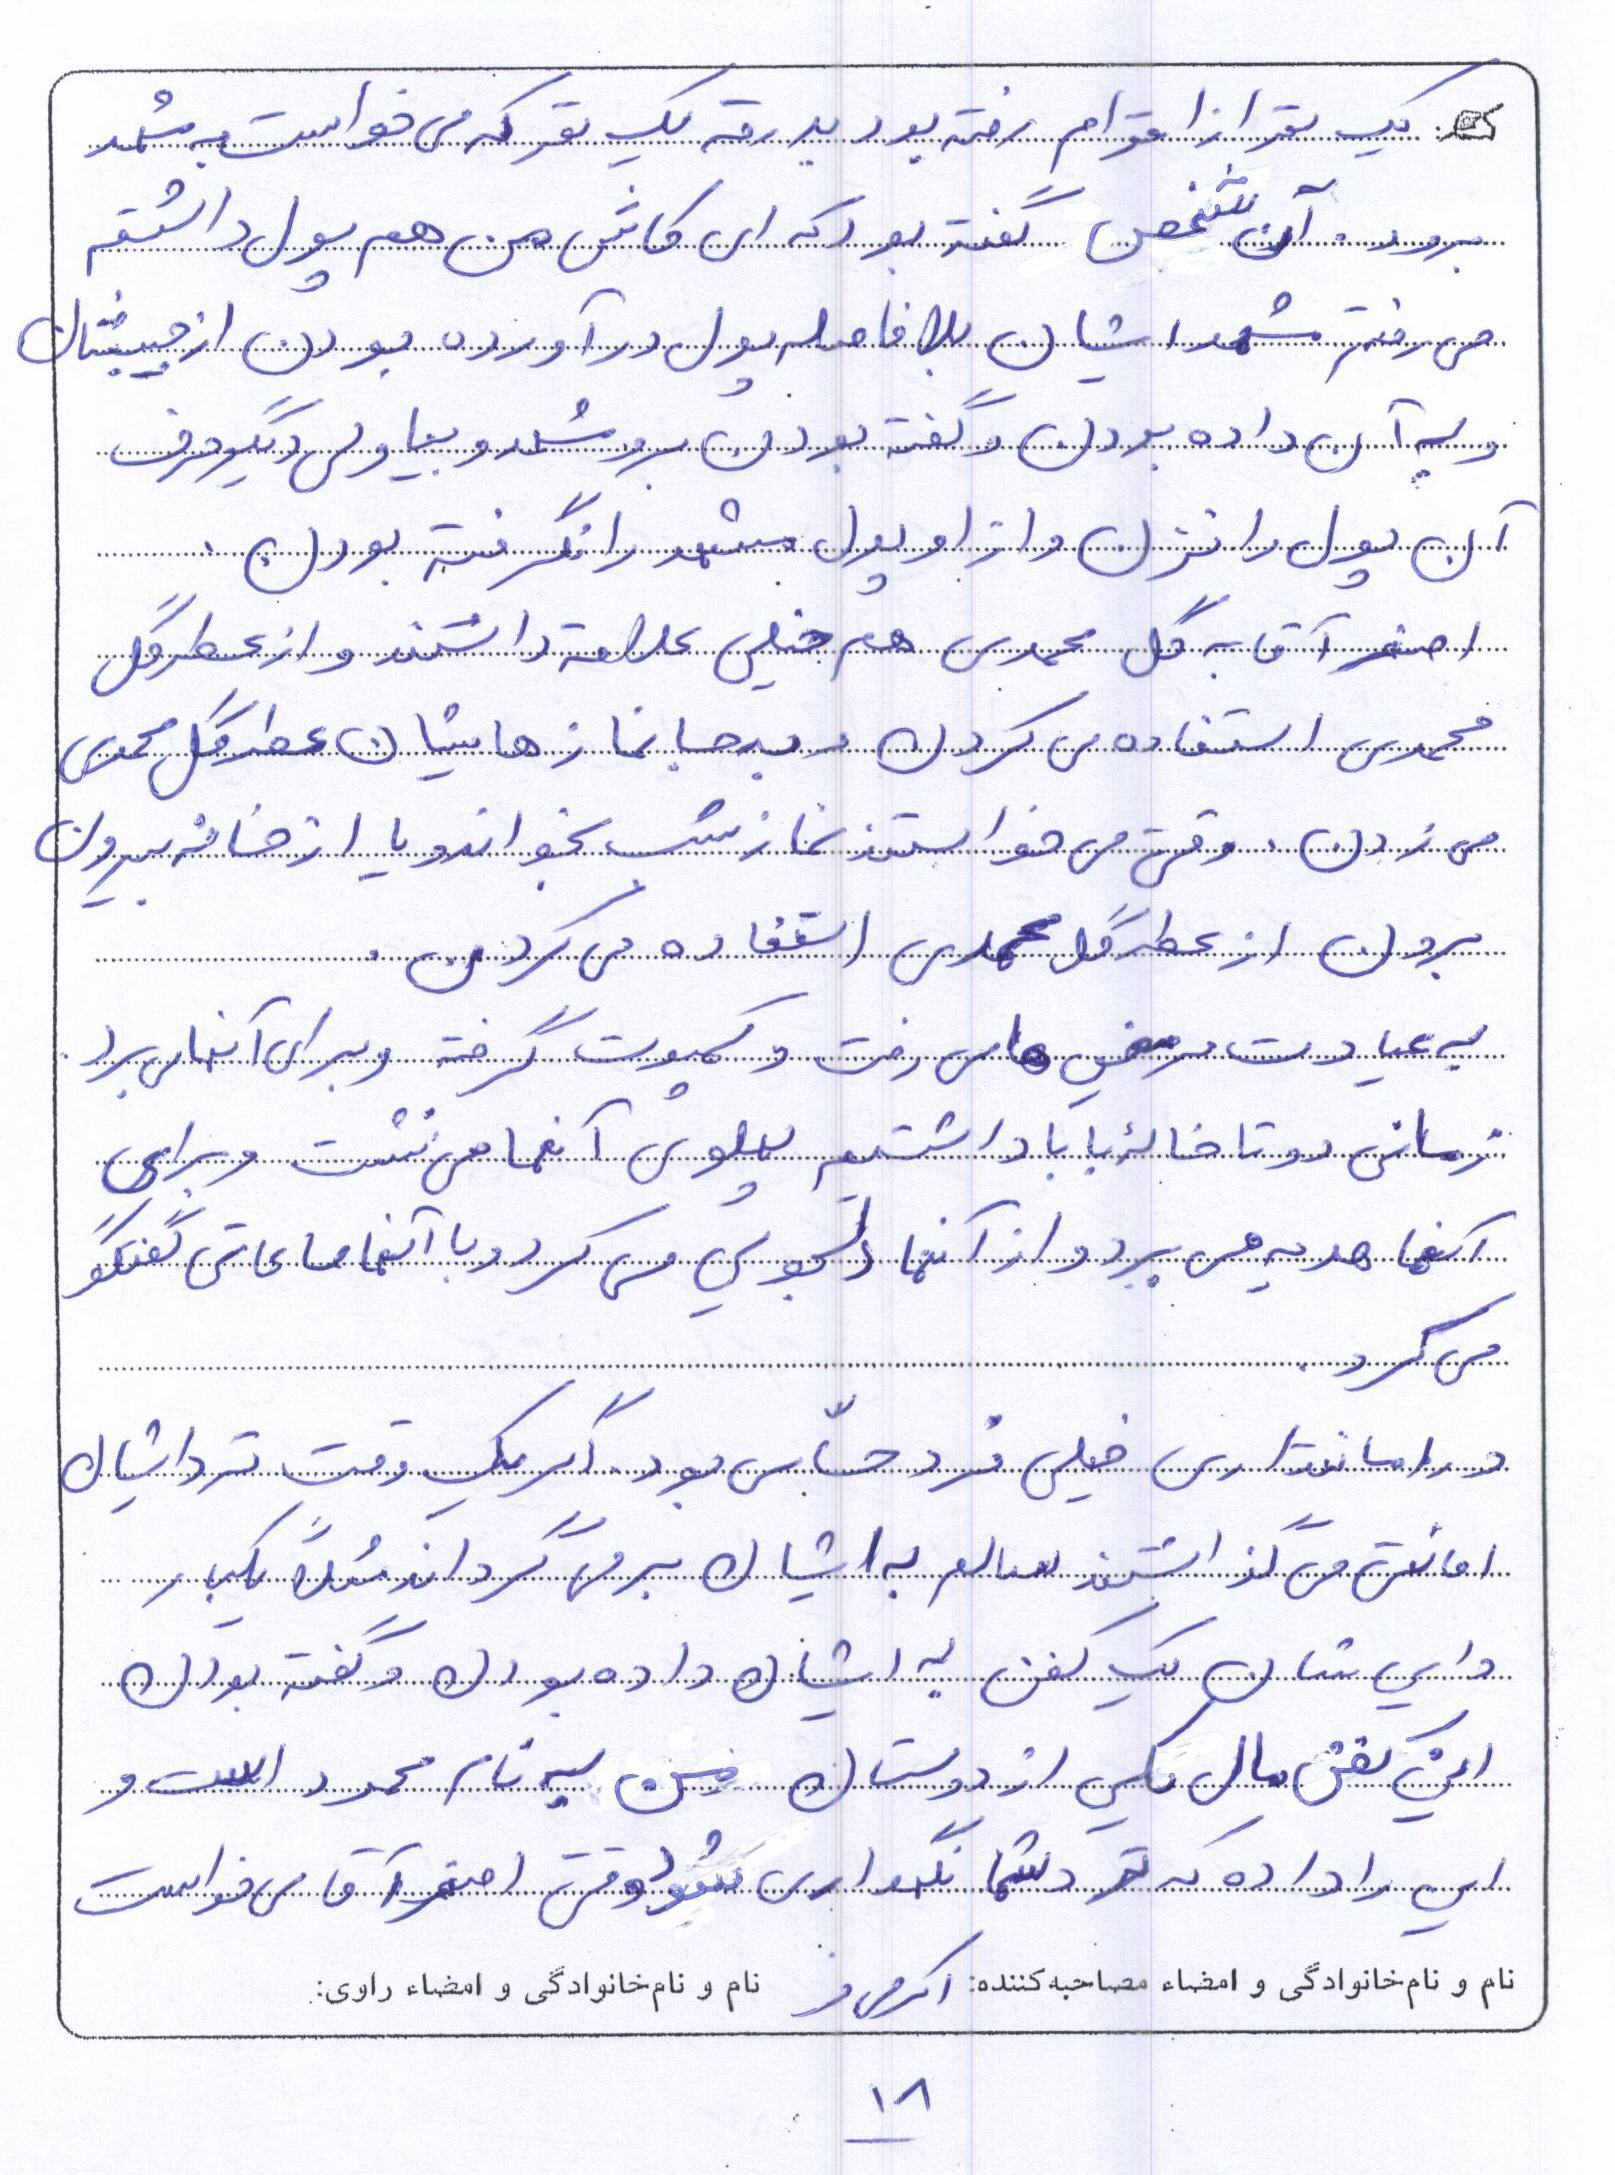 یک نفر از اقوام رفته بود بدرقه یک نفر که می خواست به مشهد
برود. آن شخص گفته بود که ای کاش من هم پول داشتم
می رفتم مشهد ایشان بلافاصله پول در آورده بودن از جیبشان
و به آن داده بودن و گفته بودن برو مشهد و بیا ولی دیگر حرف
آن پول را نزدن و از او پول مشهد را نگرفته بودن.
اصغر آقا به گل محمدی هم خیلی علاقه داشتند و از عطر گل
محمدی استفاده می کردن و به جانمازهایشان عطر گل محمدی
می زدن. وقتی می خواستند نماز شب بخواند و یا از خانه بیرون
بردن از عطر گل محمدی استفاده می کردن.
به عیادت مریض ها می رفت و کمپوت گرفته و برای آنها می برد.
زمانی دو تا خالۀ بابا داشتیم پهلوی آنها می نشست و برای
آنها هدیه می برد و از آنها دلجویی می کرد و با آنها ساعاتی گفتگو
می کرد.
در امانتداری خیلی فرد حسّاسی بود. اگر یک وقت نزد ایشان
امانتی می گذاشتند سالم به ایشان برمی گرداند مثلاً یکبار
دایی شان یک کفن به ایشان داده بودن و گفته بودن
این کفن مال یکی از دوستان من به نام محمد است و
این را داده که نزد شما نگهداری شود وقتی اصغر آقا می خواست
نام و نام خانوادگی و امضاء مصاحبه کننده:
نام و نام خانوادگی و امضاء راوی:
۱۸